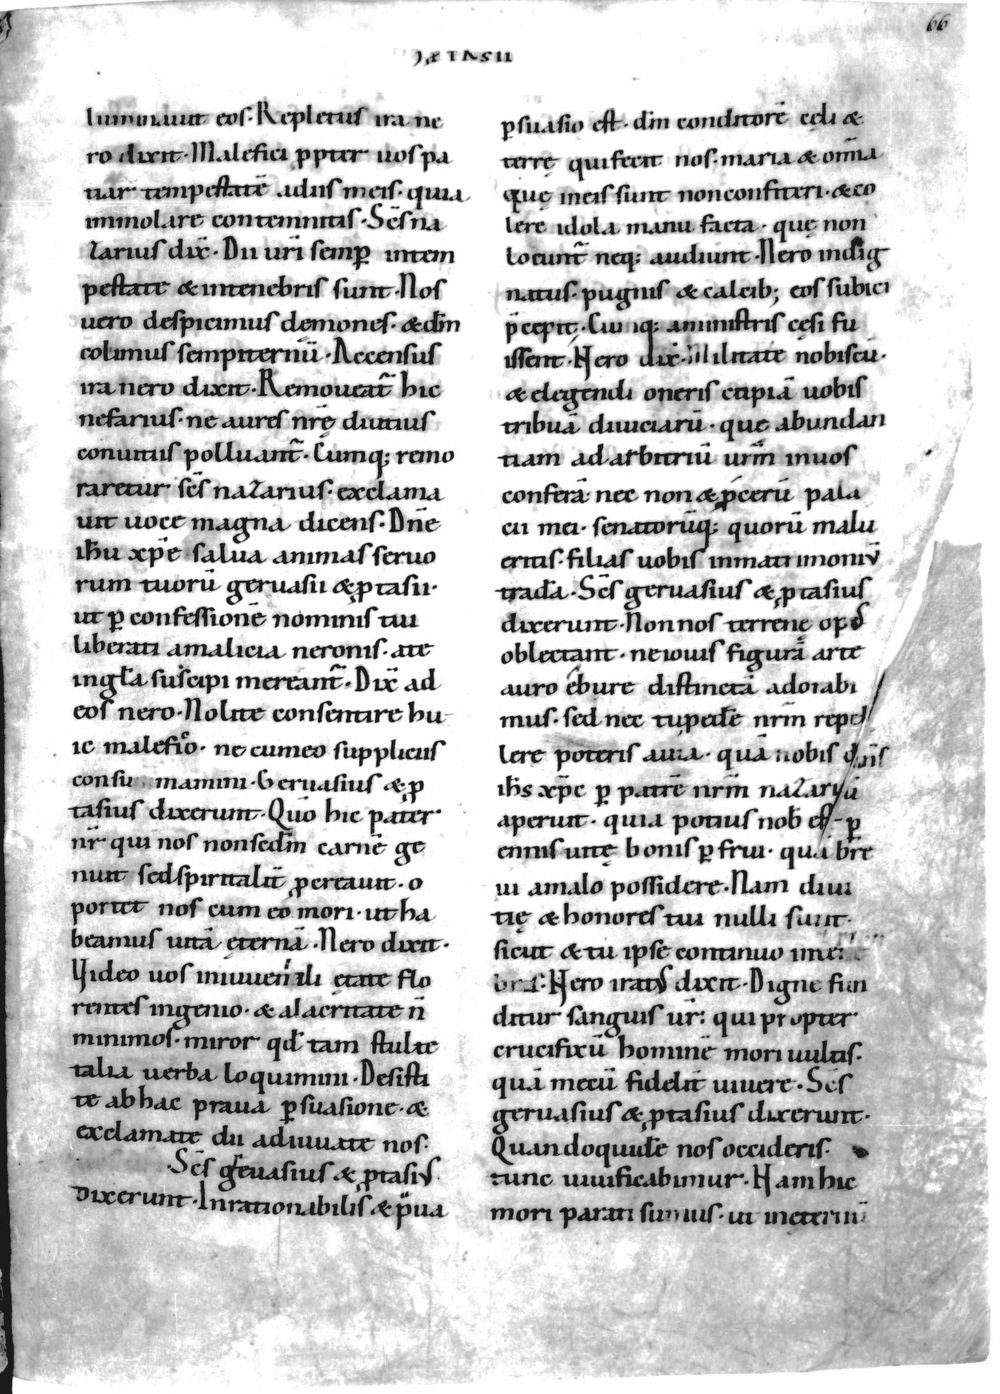 66
luminauit eos· Repletus ira ne
ro dixit· Malefici ꝓpter uos pa
tiar tempestatē a diis meis· quia
immolare contemnitis· Sc̄s na
zarius dix̄· Dii ur̄i semꝑ in tem
pestate & in tenebris sunt· Nos
uero despicimus demones· & dm̄
colimus sempiternū· Accensus
ira nero dixit· Remoueat̄ hic
nefarius· ne aures nr̄ę diutius
conuitiis polluant̄· Cumq; remo
raretur sc̄s nazarius· exclama
uit uoce magna dicens· Dn̄e
ihū xp̄e salua animas seruo
rum tuorū geruasii & ꝓtasii·
ut ꝑ confessionē nominis tui
liberati a malicia neronis· a te
in gl̄a suscipi mereant̄· Dix̄ ad
eos nero· Nolite consentire hu
ic malefico· ne cum eo suppliciis
consumamini· Geruasius & ꝓ
tasius dixerunt· Quō hic pater
nr̄ qui nos non sedm̄ carnē ge
nuit sed spiritalit̄ ꝓcreauit· o
portet nos cum eo mori· ut ha
beamus uitā ęternā· Nero dixit·
Video uos in iuuenili ętate flo
rentes ingenio· & alacritate n̄
minimos· miror qd̄ tam stulte
talia uerba loquimini· Desisti
te ab hac praua ꝑsuasione· &
exclamate dii adiuuate nos·
Sc̄s geruasius & ꝓtasius
dixerunt· Inrationabilis & p̄ua
ꝑsuasio est· dm̄ conditorē cęli &
terrę qui fecit nos· maria & om̄ia
quę in eis sunt non confiteri· & co
lere idola manu facta· quę non
locunt̄ neq; audiunt· Nero indig
natus· pugnis & calcib; eos subici
p̄cepit· Cumq; a ministris cęsi fu
issent· Nero dix̄· Militate nobiscū·
& elegendi oneris etipiā uobis
tribuā diuiciarū· quę abundan
tiam ad arbitriū urm̄ in uos
conferā nec non & ꝓcerū pala
cii mei· senatorūq; quorū malu
eritis· filias uobis in matrimoniū
tradā· Sc̄s geruasius & ꝓtasius
dixerunt· Non nos terrenę opes
oblectant· ne iouis figurā arte
auro ebure distinctā adorabi
mus· sed nec tu pedē nrm̄ repel
lere poteris a uia· quā nobis dn̄s
ihs xp̄c ꝑ patrē nrm̄ nazariū
aperuit· quia potius nob̄ est ꝑ
ennis uitę bonis ꝑfrui· quā bre
ui a malo possidere· Nam diui
tię & honores tui nulli sunt·
sicut & tu ipse continuo
Nero iratus dixit· Digne fun
ditur sanguis ur̄· qui propter
crucifixū hominē mori uultis·
quā mecū fidelit̄ uiuere· Sc̄s
geruasius & ꝓtasius dixerunt·
Quandoquidē nos occideris·
tunc uiuificabimur· Nam hic
mori parati sumus· ut in etern